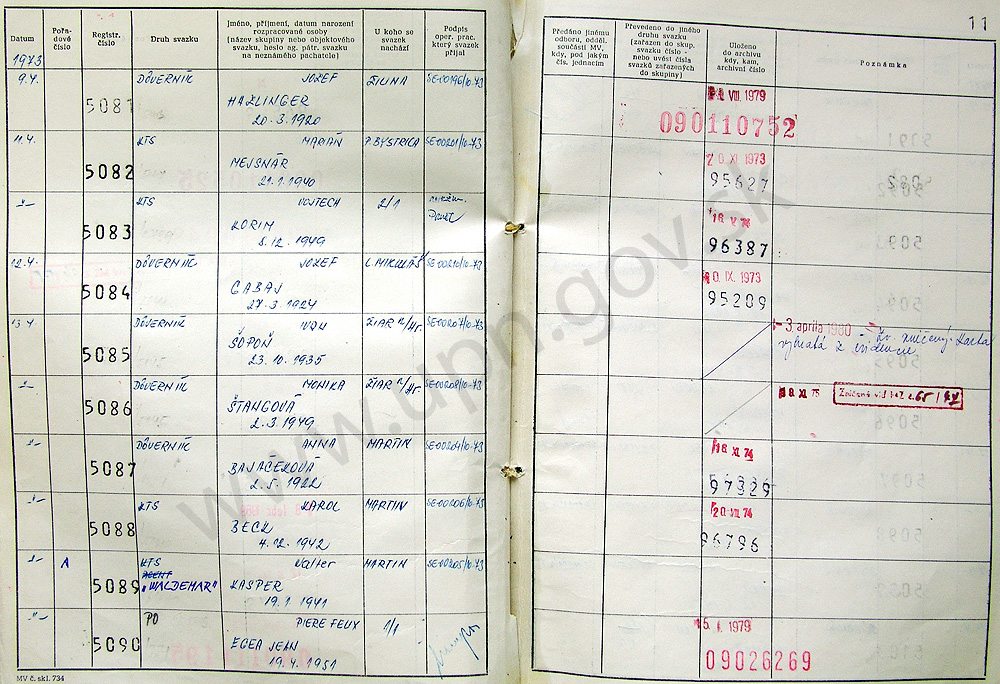 11
Datum
Pořa-
dové
číslo
Registr.
číslo
Druh svazku
Jméno, příjmení, datum narození
rozpracované osoby
(název skupiny nebo objektového
svazku, heslo ag. pátr. svazku
na neznámého pachatele)
U koho se
svazek
nachází
Podpis
oper. prac.
který svazek
přijal
Předáno jinému
odboru, odděl.
součásti MV,
kdy, pod jakým
čís. jednacím
Převedeno do jiného
druhu svazku
(zařazen do skup.
svazku číslo -
nebo uvést čísla
svazků zařazených
do skupiny)
Uloženo
do archivu
kdy, kam,
archivní číslo
Poznámka
1973
9.4. DÔVERNÍK JOZEF ŽILINA SE-00196/10-73 VIII. 1979
5081 HAZLINGER 090110752
20.3.1920
11.4. KTS MARIÁN P. BYSTRICA SE-00201/10-73 20. XI. 1973
5082 MEJSNÁR 95627
21.1.1940
-"- KTS VOJTECH 2/1 V. 74
5083 KORIM 96387
5.12.1949
12.4. DÔVERNÍK JOZEF L. MIKULÁŠ SE-00210/10-73 IX. 1973
5084 GABAJ 95209
27.3.1924
13.4 DÔVERNÍK IVAN ŽIAR n/Hr. SE-00207/10-73 - 3. apríla 1980
5085 ŠOPOŇ zv. zničený. Karta
23.10.1935 vybratá z evidencie
-"- DÔVERNÍK MONIKA ŽIAR n/Hr. SE-00208/10-73 XI. 75
5086 ŠTANGOVÁ
2.3.1949
-"- DÔVERNÍK ANNA MARTIN SE-00204/10-73 XI. 74
5087 BAJACEKOVÁ 97329
2.5.1922
-"- KTS KAROL MARTIN SE-00206/10-73 20. VII 74
5088 BECK 96796
4.12.1942
-"- A KTS Walter MARTIN SE-00205/10-73
AGENT
5089 "WALDEMAR" KASPER
19.1.1941
-"- PO PIERE FELIX 1/1 1979
5090 EGEA JEAN 09026269
19.4.1951
MV č. skl. 734
www.upn.gov.sk